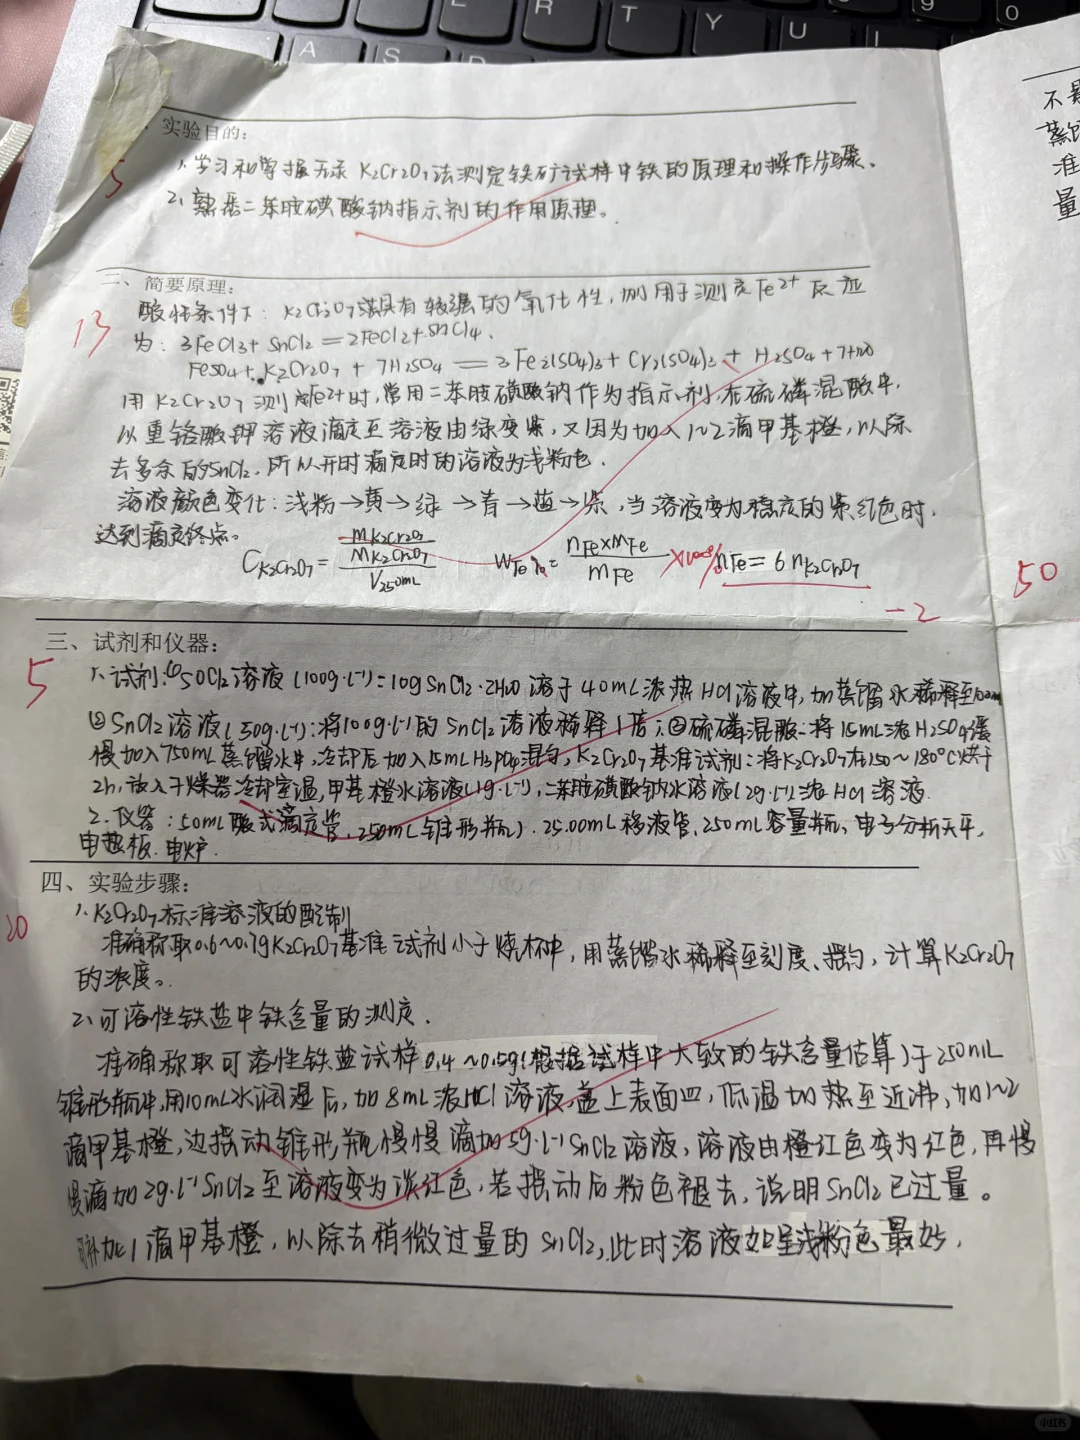 E R T Y U 9 0
A S D
实验目的:
1、学习和掌握无汞K2Cr2O7法测定铁矿试样中铁的原理和操作步骤、
2、熟悉二苯胺磺酸钠指示剂的作用原理。
5
二、简要原理:
酸性条件下: K2Cr2O7溶具有较强的氧化性,则用于测定Fe2+ 反应
为: 3FeCl3+ SnCl2 = 2FeCl2+SnCl4.
13
FeSO4+K2Cr2O7 + 7H2SO4 = 3Fe2(SO4)3+ Cr2(SO4)3 + H2SO4+7H2O
用K2Cr2O7测定Fe2+时,常用二苯胺磺酸钠作为指示剂,在硫磷混酸中,
以重铬酸钾溶液滴定至溶液由绿变紫,又因为加入1~2滴甲基橙,以除
去多余的SnCl2,所以开时滴定时的溶液为浅粉色.
溶液颜色变化: 浅粉→黄→绿→青→蓝→紫,当溶液变为稳定的紫红色时,
达到滴定终点。
CK2Cr2O7= mK2Cr2O7 / MK2Cr2O7 / V250mL WFe%= nFe×MFe / mFe ×100% nFe= 6 nK2Cr2O7
-2
50
三、试剂和仪器:
5
1、试剂:(1)SnCl2溶液(100g·L-1)=10gSnCl2·2H2O溶于40mL浓热HCl溶液中,加蒸馏水稀释至100mL
②SnCl2溶液(50g·L-1):将100g·L-1的SnCl2溶液稀释1倍;③硫磷混酸:将15mL浓H2SO4缓
慢加入750mL蒸馏水中,冷却后加入15mLH3PO4混匀,K2Cr2O7基准试剂:将K2Cr2O7在150~180°C烘干
2h,放入干燥器冷却室温,甲基橙水溶液(1g·L-1),二苯胺磺酸钠水溶液(2g·L-1)浓HCl溶液.
2、仪器:50mL酸式滴定管、250mL锥形瓶、25.00mL移液管、250mL容量瓶、电子分析天平,
电热板、电炉.
四、实验步骤:
20
1、K2Cr2O7标准溶液的配制
准确称取0.6~0.7gK2Cr2O7基准试剂小于烧杯中,用蒸馏水稀释至刻度、摇匀,计算K2Cr2O7
的浓度。
2、可溶性铁盐中铁含量的测定.
准确称取可溶性铁盐试样0.4~0.5g(根据试样中大致的铁含量估算)于250mL
锥形瓶中,用10mL水润湿后,加8mL浓HCl溶液,盖上表面皿,低温加热至近沸,加1~2
滴甲基橙,边摇动锥形瓶慢慢滴加5g·L-1SnCl2溶液,溶液由橙红色变为红色,再慢
慢滴加2g·L-1SnCl2至溶液变为淡红色,若摇动后粉色褪去,说明SnCl2已过量。
可补加1滴甲基橙,以除去稍微过量的SnCl2,此时溶液如呈浅粉色最好,
蒸馏
准
量
小红书